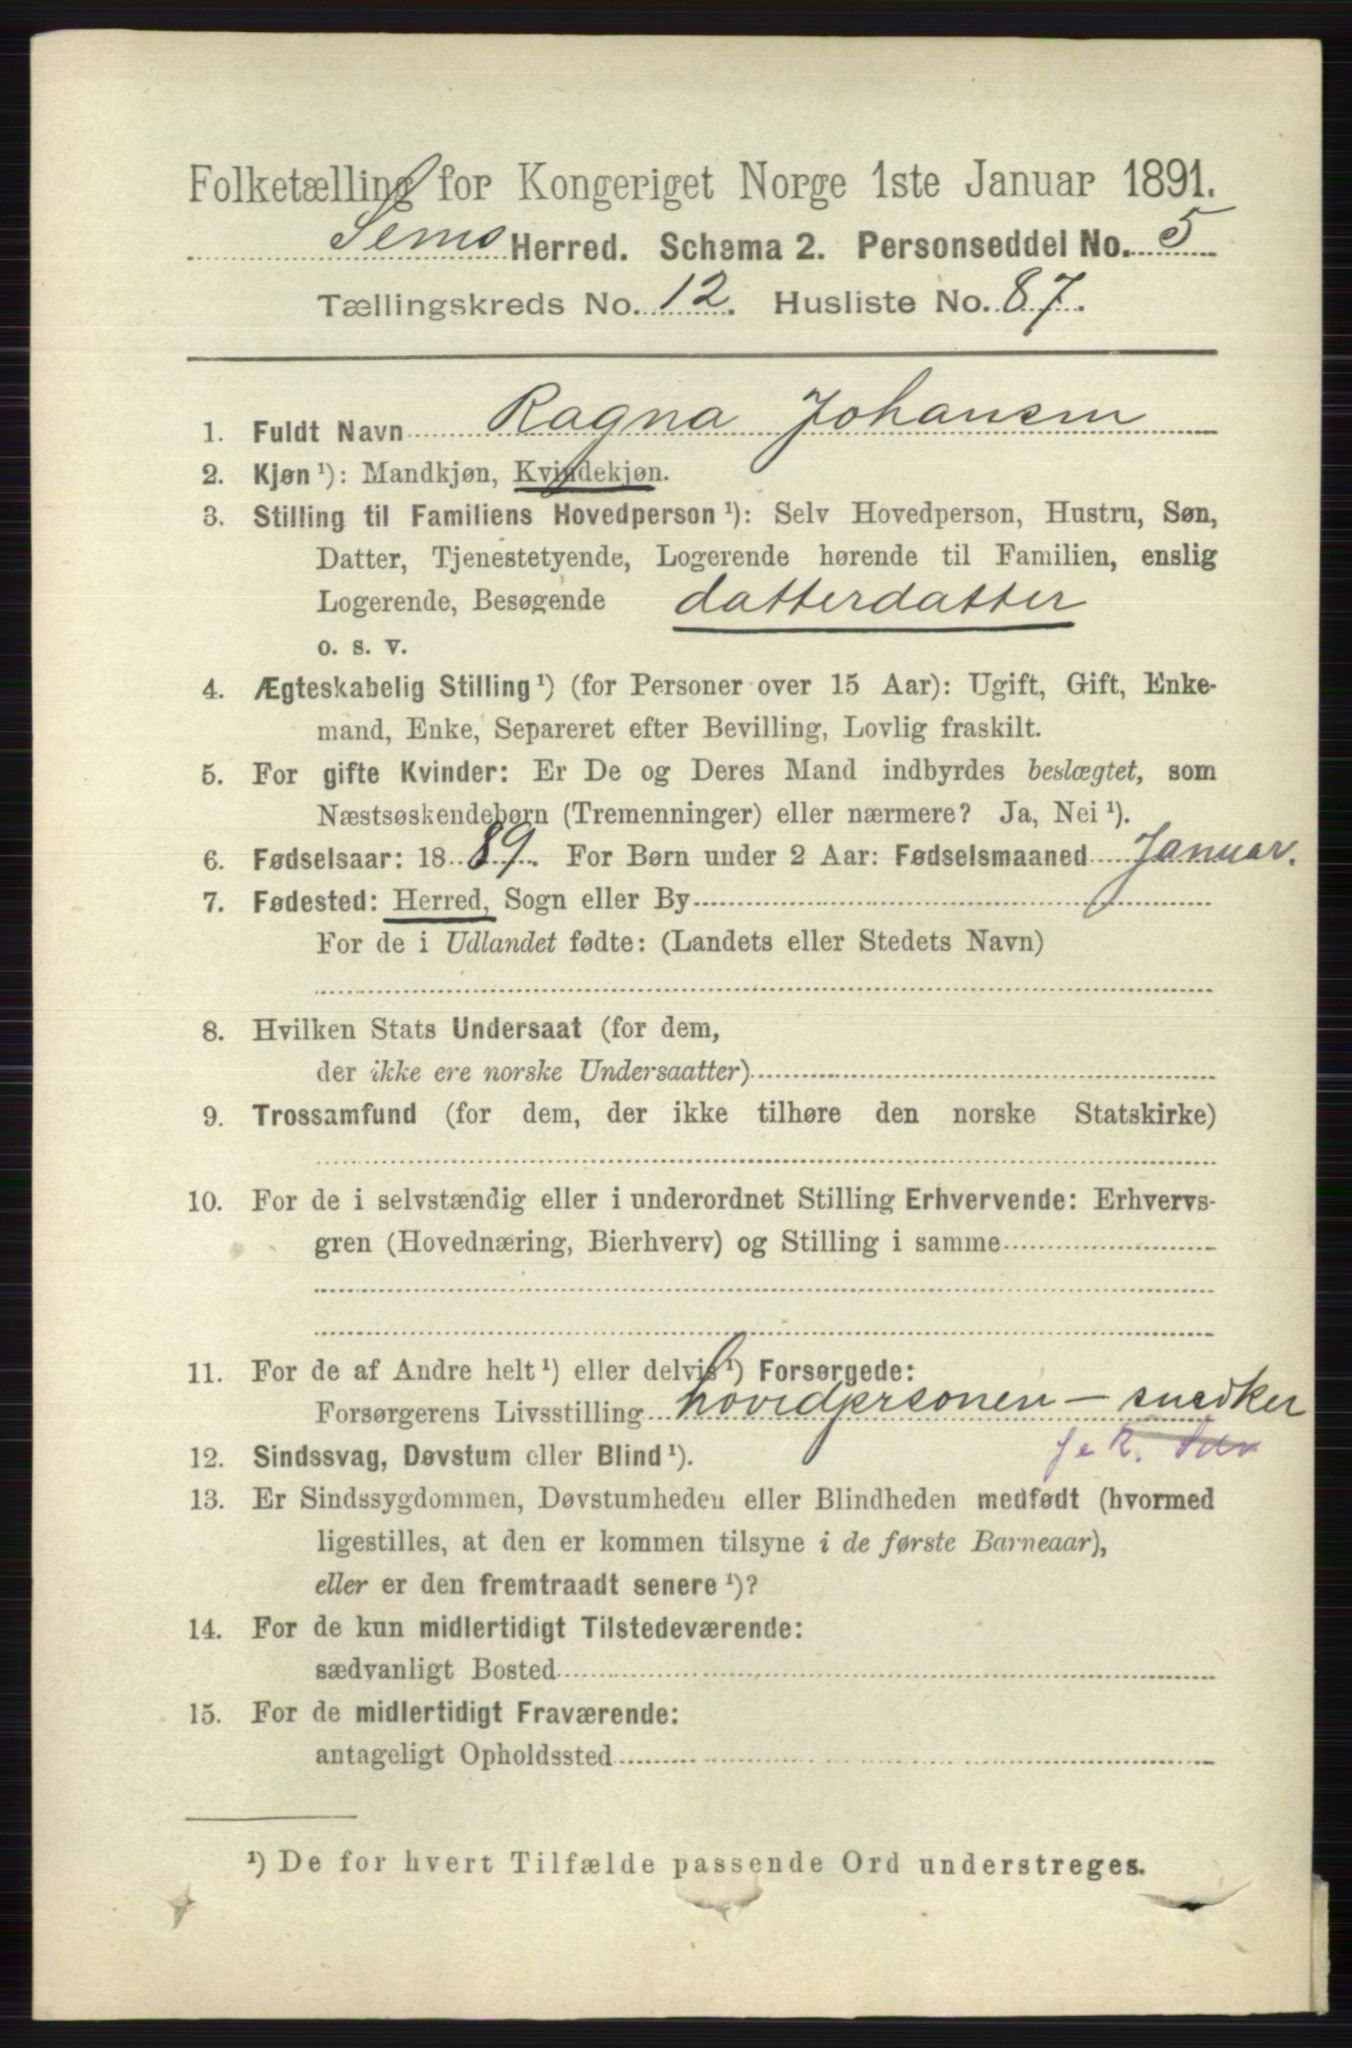 Folketælling for Kongeriget Norge 1ste Januar 1891.
Sems Herred. Schema 2. Personseddel No. 5
Tællingskreds No. 12. Husliste No. 87.
1. Fuldt Navn Ragna Johansen
2. Kjøn ¹): Mandkjøn, Kvindekjøn.
3. Stilling til Familiens Hovedperson ¹): Selv Hovedperson, Hustru, Søn,
Datter, Tjenestetyende, Logerende hørende til Familien, enslig
Logerende, Besøgende datterdatter
o. s. v.
4. Ægteskabelig Stilling ¹) (for Personer over 15 Aar): Ugift, Gift, Enke-
mand, Enke, Separeret efter Bevilling, Lovlig fraskilt.
5. For gifte Kvinder: Er De og Deres Mand indbyrdes beslægtet, som
Næstsøskendebørn (Tremenninger) eller nærmere? Ja, Nei ¹).
6. Fødselsaar: 1889. For Børn under 2 Aar: Fødselsmaaned Januar.
7. Fødested: Herred, Sogn eller By
For de i Udlandet fødte: (Landets eller Stedets Navn)
8. Hvilken Stats Undersaat (for dem,
der ikke ere norske Undersaatter)
9. Trossamfund (for dem, der ikke tilhøre den norske Statskirke)
10. For de i selvstændig eller i underordnet Stilling Erhvervende: Erhvervs-
gren (Hovednæring, Bierhverv) og Stilling i samme
11. For de af Andre helt ¹) eller delvis ¹) Forsørgede:
Forsørgerens Livsstilling hovedpersonen – snedker
12. Sindssvag, Døvstum eller Blind ¹).
13. Er Sindssygdommen, Døvstumheden eller Blindheden medfødt (hvormed
ligestilles, at den er kommen tilsyne i de første Barneaar),
eller er den fremtraadt senere ¹)?
14. For de kun midlertidigt Tilstedeværende:
sædvanligt Bosted
15. For de midlertidigt Fraværende:
antageligt Opholdssted
¹) De for hvert Tilfælde passende Ord understreges.